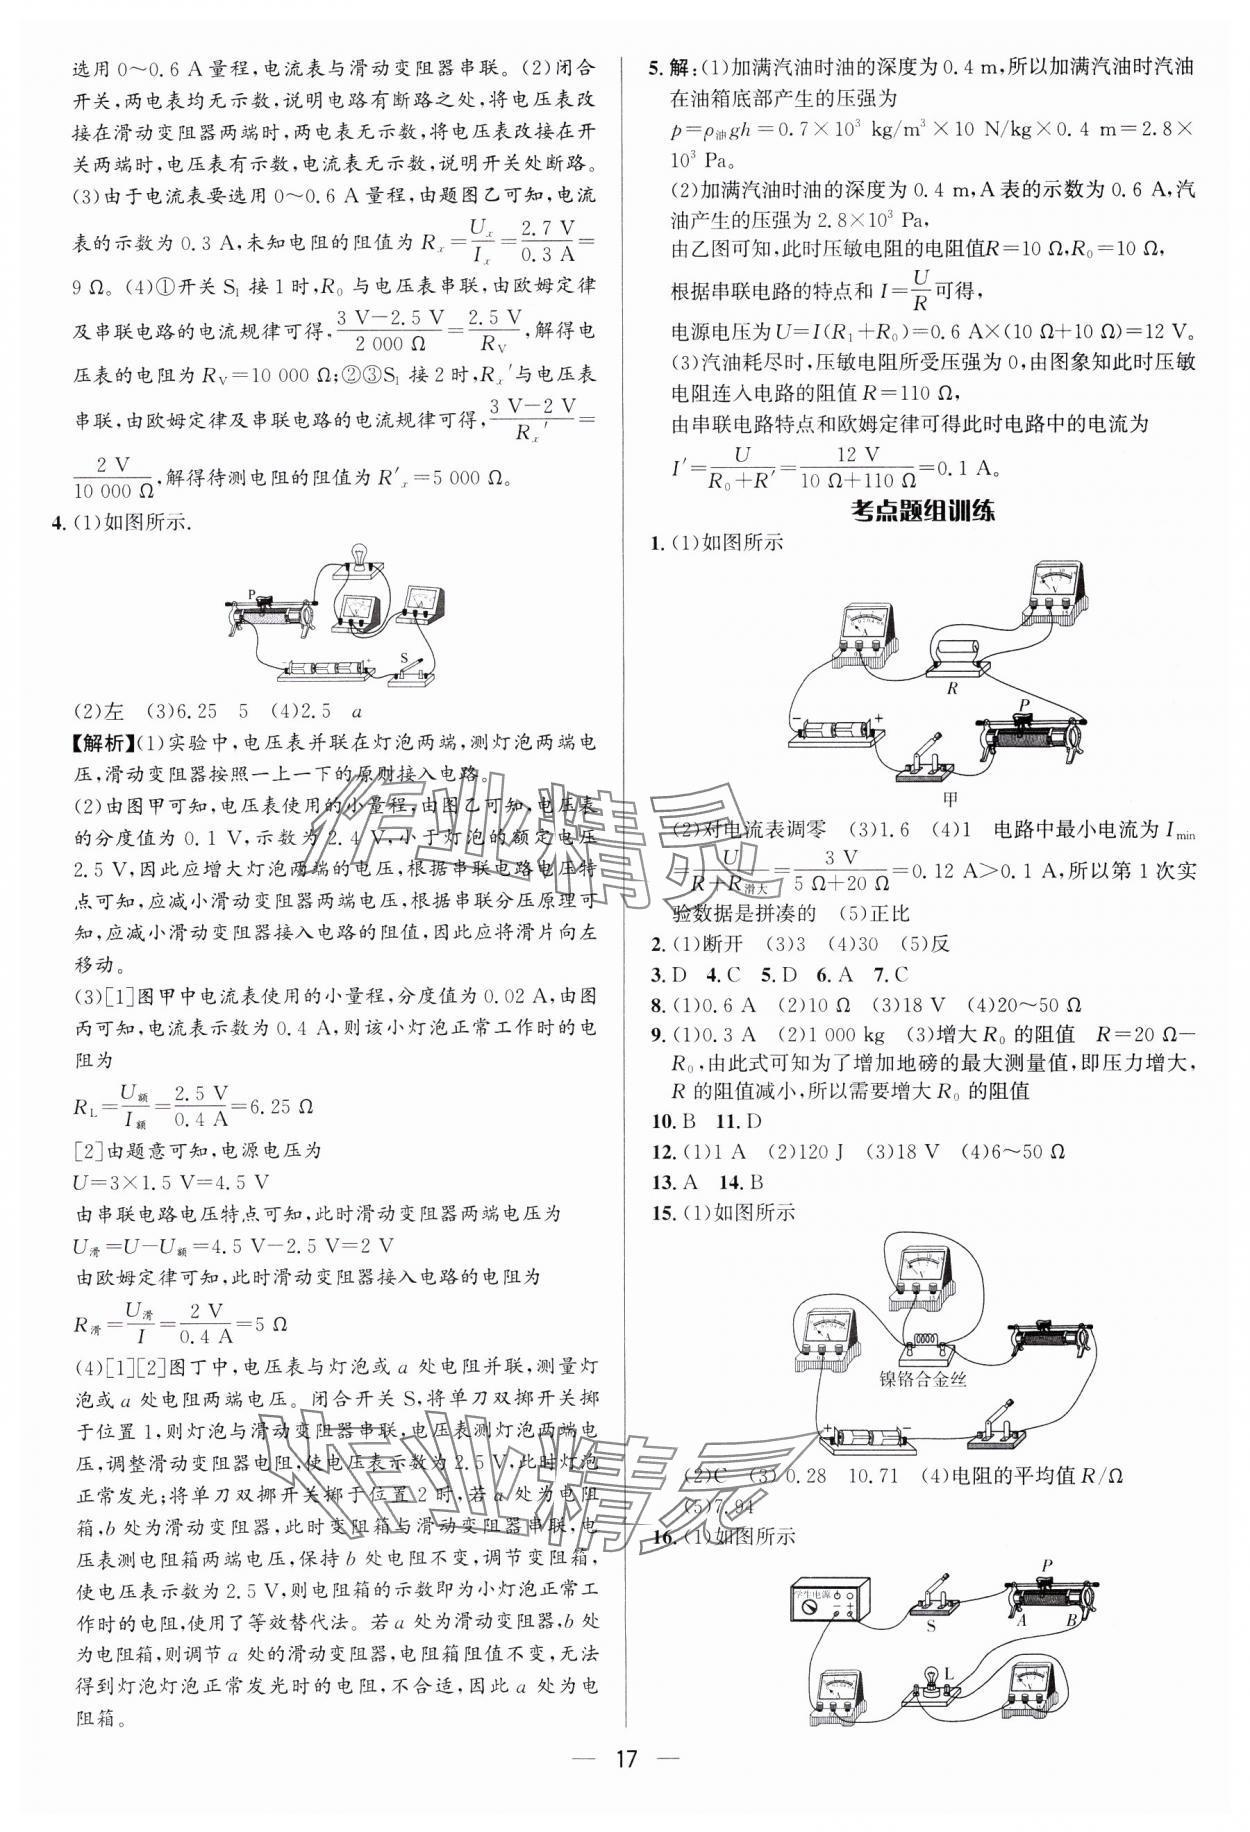 选用0～0.6 A量程,电流表与滑动变阻器串联。(2)闭合
开关,两电表均无示数,说明电路有断路之处,将电压表改
接在滑动变阻器两端时,两电表无示数,将电压表改接在开
关两端时,电压表有示数,电流表无示数,说明开关处断路。
(3)由于电流表要选用0～0.6 A量程,由题图乙可知,电流
表的示数为0.3 A,未知电阻的阻值为Rₓ=Uₓ/Iₓ=2.7 V/0.3 A=
9 Ω。(4)①开关S₁接1时,R₀与电压表串联,由欧姆定律
及串联电路的电流规律可得,(3 V-2.5 V)/2 000 Ω=2.5 V/R_V,解得电
压表的电阻为R_V=10 000 Ω;②③S₁接2时,Rₓ′与电压表
串联,由欧姆定律及串联电路的电流规律可得,(3 V-2 V)/Rₓ′=
2 V/10 000 Ω,解得待测电阻的阻值为R′ₓ=5 000 Ω。
4.(1)如图所示.
P
S
- +
(2)左 (3)6.25 5 (4)2.5 a
【解析】(1)实验中,电压表并联在灯泡两端,测灯泡两端电
压,滑动变阻器按照一上一下的原则接入电路。
(2)由图甲可知,电压表使用的小量程,由图乙可知,电压表
的分度值为0.1 V,示数为2.4 V,小于灯泡的额定电压
2.5 V,因此应增大灯泡两端的电压,根据串联电路电压特
点可知,应减小滑动变阻器两端电压,根据串联分压原理可
知,应减小滑动变阻器接入电路的阻值,因此应将滑片向左
移动。
(3)[1]图甲中电流表使用的小量程,分度值为0.02 A,由图
丙可知,电流表示数为0.4 A,则该小灯泡正常工作时的电
阻为
R_L=U额/I额=2.5 V/0.4 A=6.25 Ω
[2]由题意可知,电源电压为
U=3×1.5 V=4.5 V
由串联电路电压特点可知,此时滑动变阻器两端电压为
U滑=U-U额=4.5 V-2.5 V=2 V
由欧姆定律可知,此时滑动变阻器接入电路的电阻为
R滑=U滑/I=2 V/0.4 A=5 Ω
(4)[1][2]图丁中,电压表与灯泡或a处电阻并联,测量灯
泡或a处电阻两端电压。闭合开关S,将单刀双掷开关掷
于位置1,则灯泡与滑动变阻器串联,电压表测灯泡两端电
压,调整滑动变阻器电阻,使电压表示数为2.5 V,此时灯泡
正常发光;将单刀双掷开关掷于位置2时,若a处为电阻
箱,b处为滑动变阻器,此时变阻箱与滑动变阻器串联,电
压表测电阻箱两端电压,保持b处电阻不变,调节变阻箱,
使电压表示数为2.5 V,则电阻箱的示数即为小灯泡正常工
作时的电阻,使用了等效替代法。若a处为滑动变阻器,b处
为电阻箱,则调节a处的滑动变阻器,电阻箱阻值不变,无法
得到灯泡灯泡正常发光时的电阻,不合适,因此a处为电
阻箱。
5.解:(1)加满汽油时油的深度为0.4 m,所以加满汽油时汽油
在油箱底部产生的压强为
p=ρ油gh=0.7×10³ kg/m³×10 N/kg×0.4 m=2.8×
10³ Pa。
(2)加满汽油时油的深度为0.4 m,A表的示数为0.6 A,汽
油产生的压强为2.8×10³ Pa,
由乙图可知,此时压敏电阻的电阻值R=10 Ω,R₀=10 Ω,
根据串联电路的特点和I=U/R可得,
电源电压为U=I(R₁+R₀)=0.6 A×(10 Ω+10 Ω)=12 V。
(3)汽油耗尽时,压敏电阻所受压强为0,由图象知此时压敏
电阻连入电路的阻值R=110 Ω,
由串联电路特点和欧姆定律可得此时电路中的电流为
I′=U/(R₀+R′)=12 V/(10 Ω+110 Ω)=0.1 A。
考点题组训练
1.(1)如图所示
R
P
- +
甲
(2)对电流表调零 (3)1.6 (4)1 电路中最小电流为I_min
=U/(R+R滑大)=3 V/(5 Ω+20 Ω)=0.12 A>0.1 A,所以第1次实
验数据是拼凑的 (5)正比
2.(1)断开 (3)3 (4)30 (5)反
3.D 4.C 5.D 6.A 7.C
8.(1)0.6 A (2)10 Ω (3)18 V (4)20～50 Ω
9.(1)0.3 A (2)1 000 kg (3)增大R₀的阻值 R=20 Ω-
R₀,由此式可知为了增加地磅的最大测量值,即压力增大,
R的阻值减小,所以需要增大R₀的阻值
10.B 11.D
12.(1)1 A (2)120 J (3)18 V (4)6～50 Ω
13.A 14.B
15.(1)如图所示
镍铬合金丝
+ -
(2)C (3)0.28 10.71 (4)电阻的平均值R/Ω
(5)7.94
16.(1)如图所示
学生电源
S
P
A B
L
作业精灵
作业精灵
— 17 —